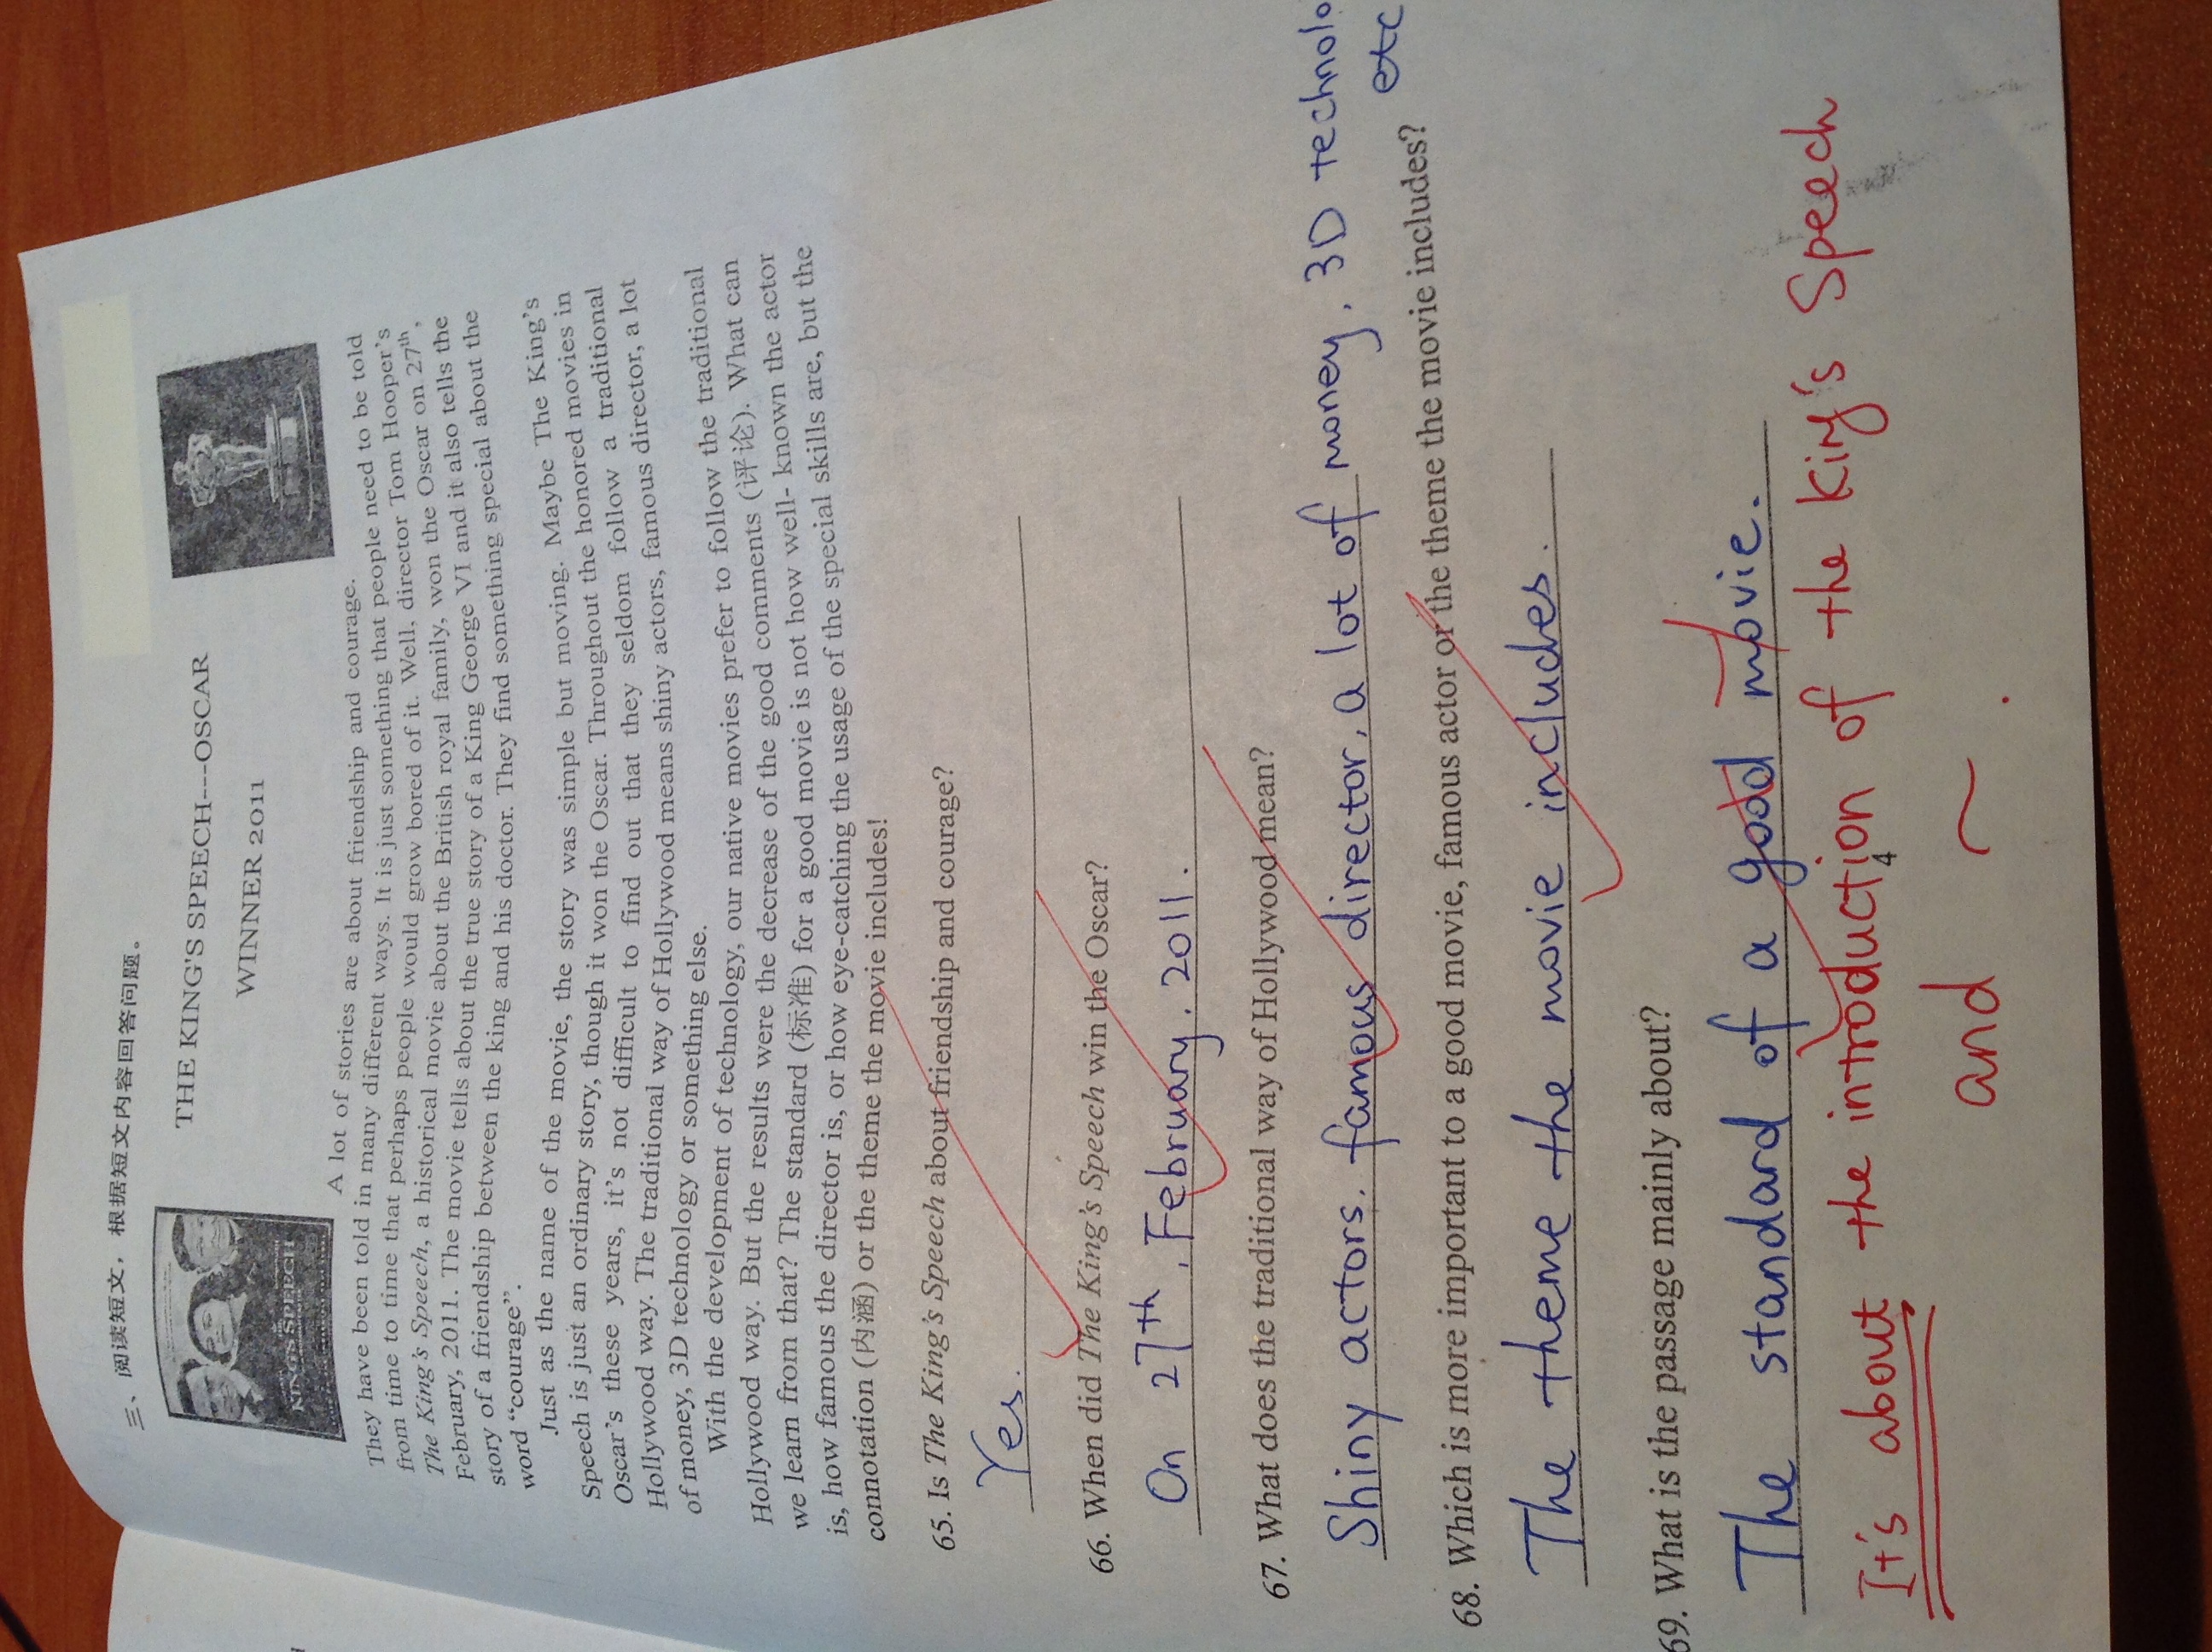 三、阅读短文，根据短文内容回答问题。
KING'S SPEECH
THE KING'S SPEECH---OSCAR
WINNER 2011
A lot of stories are about friendship and courage.
They have been told in many different ways. It is just something that people need to be told
from time to time that perhaps people would grow bored of it. Well, director Tom Hooper's
The King's Speech, a historical movie about the British royal family, won the Oscar on 27th,
February, 2011. The movie tells about the true story of a King George VI and it also tells the
story of a friendship between the king and his doctor. They find something special about the
word “courage”.
Just as the name of the movie, the story was simple but moving. Maybe The King's
Speech is just an ordinary story, though it won the Oscar. Throughout the honored movies in
Oscar's these years, it's not difficult to find out that they seldom follow a traditional
Hollywood way. The traditional way of Hollywood means shiny actors, famous director, a lot
of money, 3D technology or something else.
With the development of technology, our native movies prefer to follow the traditional
Hollywood way. But the results were the decrease of the good comments (评论). What can
we learn from that? The standard (标准) for a good movie is not how well- known the actor
is, how famous the director is, or how eye-catching the usage of the special skills are, but the
connotation (内涵) or the theme the movie includes!
65. Is The King's Speech about friendship and courage?
Yes.
66. When did The King's Speech win the Oscar?
On 27th, February. 2011.
67. What does the traditional way of Hollywood mean?
Shiny actors. famous director, a lot of money, 3D technolo
etc
68. Which is more important to a good movie, famous actor or the theme the movie includes?
The theme the movie includes.
69. What is the passage mainly about?
The standard of a good movie.
It's about the introduction of the King's Speech
4
and ~.